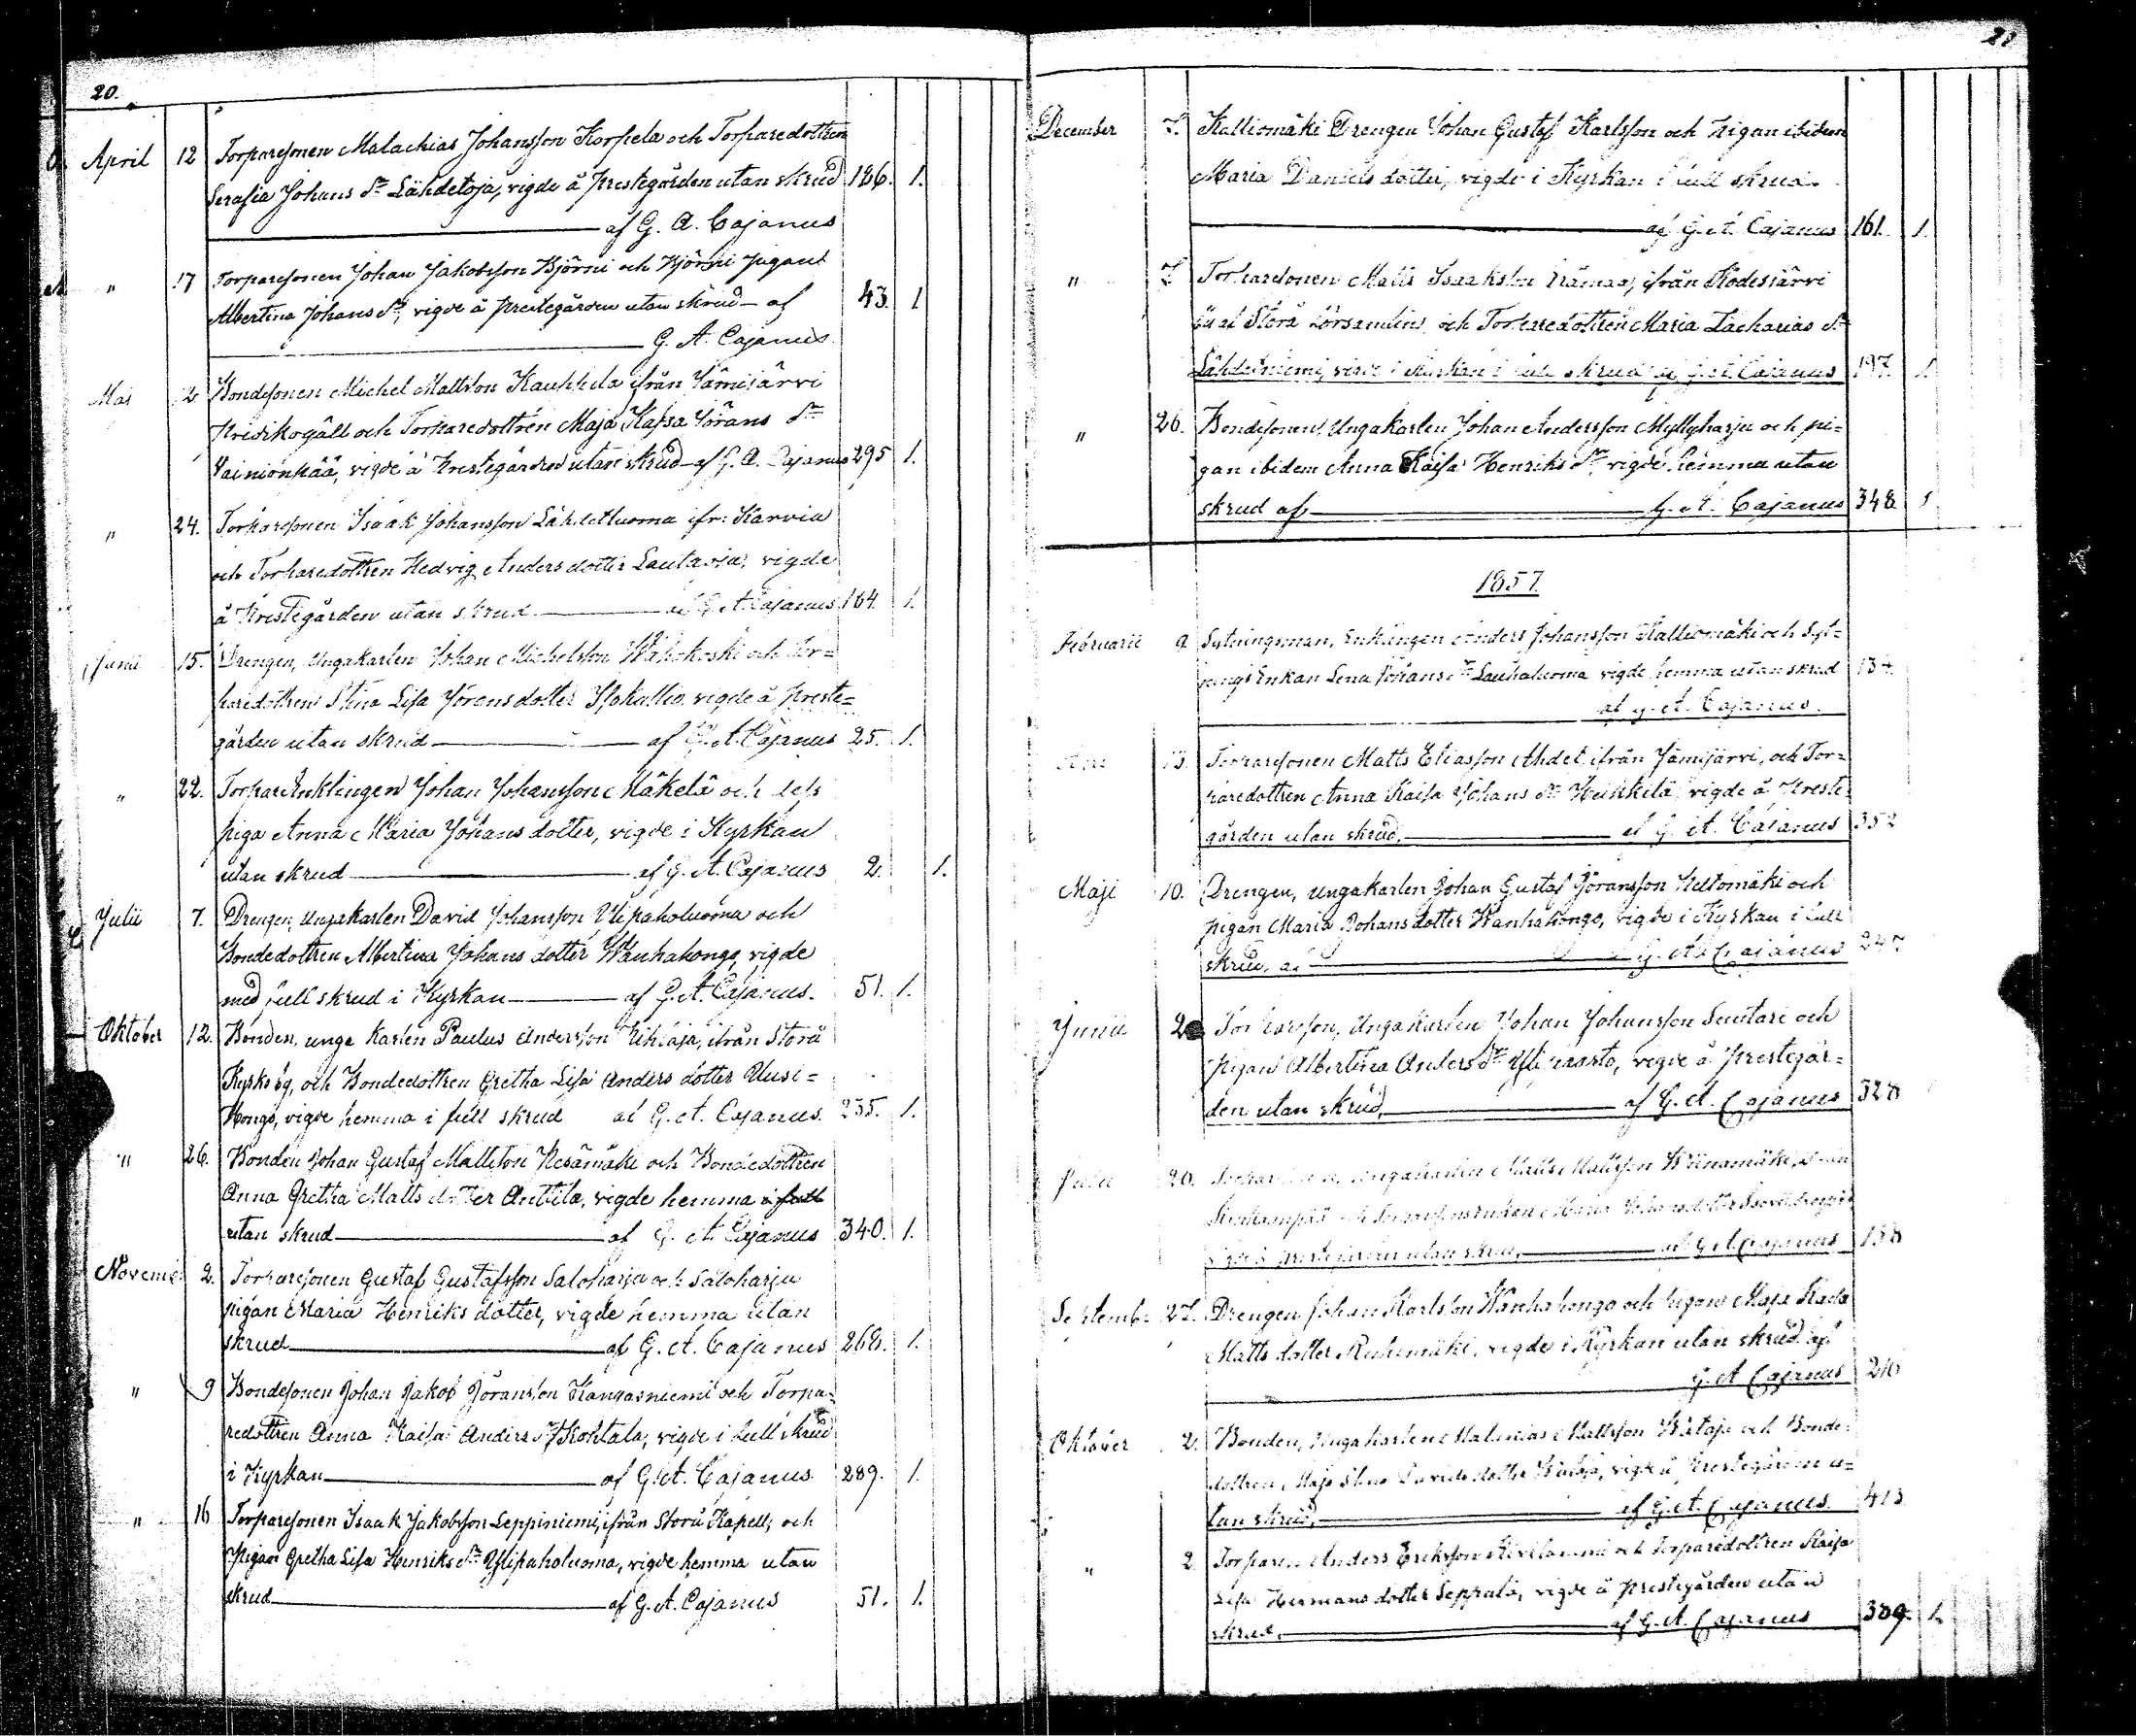 20.
April 12 Torparesonen Malachias Johansson Korpela och Torparedottren
Serafia Johans dr Lähdetoja, vigde å prestegården utan skrud 186. 1.
af G. A. Cajanus
" 17 Torparesonen Johan Jakobsson Björni och Björni pigan
Albertina Johans dr, vigde å prestegården utan skrud – af 43. 1
G. A. Cajanus
Maj 2 Bondesonen Michel Mattsson Kauppila ifrån Jämijärvi
och Torparedottren Maja Kajsa Jörans dr
Vainionpää, vigde å Prestegården utan skrud af G. A. Cajanus 295 1.
" 24. Torparesonen Isaak Johansson Lähdetluoma ifr: Karvia
och Torparedottren Hedvig Anders dotter Lautaoja, vigde
å Prestegården utan skrud af G. A. Cajanus 164. 1.
Junii 15. Drengen, Ungakarlen Johan Michelsson Wähäkoski och Tor=
paredottren Stina Lisa Jörans dotter Isokallio vigde å Preste=
gården utan skrud af G. A. Cajanus 25. 1.
" 22. Torpare Enklingen Johan Johansson Mäkelä och dess
piga Anna Maria Johans dotter, vigde i Kyrkan
utan skrud af G. A. Cajanus 2. 1.
Julii 7. Drengen, Ungakarlen David Johansson Ylipaholuoma och
Bondedottren Albertina Johans dotter Wanhahongo, vigde
med full skrud i Kyrkan af G. A. Cajanus. 51. 1.
Oktober 12. Bonden, unga Karlen Paulus Andersson ifrån Storå
och Bondedottren Gretha Lisa Anders dotter Uusi=
Hongo, vigde hemma i full skrud af G. A. Cajanus. 235. 1.
" 26. Bonden Johan Gustaf Mattsson Kesämäki och Bondedottren
Anna Gretha Matts dotter Anttila, vigde hemma i full
utan skrud af G. A. Cajanus 340. 1.
Novemb. 2. Torparesonen Gustaf Gustafsson Saloharju och Saloharju
pigan Maria Henriks dotter, vigde hemma utan
skrud af G. A. Cajanus 268. 1.
" 9 Bondesonen Johan Jakob Jöransson Kangasniemi och Torpa=
redottren Anna Kaisa Anders dr Kohtala, vigde i full skrud
i Kyrkan af G. A. Cajanus. 289. 1.
" 16 Torparesonen Isaak Jakobsson Leppiniemi, ifrån Storå Kapell, och
Pigan Gretha Lisa Henriks dr Ylipaholuoma, vigde hemma utan
skrud af G. A. Cajanus 51. 1.
21
December 7. Kalliomäki Drengen Johan Gustaf Karlsson och Pigan ibidem
Maria Daniels dotter, vigde i Kyrkan i full skrud.
af G. A. Cajanus 161. 1.
" 7 Torparesonen Matts Isaaksson ifrån Kodesjärvi
Storå församling och Torparedottren Maria Zacharias dr
Lähdeniemi, vigde i Kyrkan i full skrud af G. A. Cajanus 197. 1.
" 26. Bondesonen, Ungakarlen Johan Andersson Myllyharju och pi=
gan ibidem Anna Kaisa Henriks dr vigde hemma utan
skrud af G. A. Cajanus 348 1
1857.
Februarii 9 Sytningsman, Enklingen Anders Johansson Kalliomäki och Syt=
nings Enkan Lena Johans dr Lauhaluoma vigde hemma utan skrud 134
af G. A. Cajanus.
13. Torparesonen Matts Eliasson Ahdet ifrån Jämijärvi, och Tor=
paredottren Anna Kaisa Johans dr Heikkilä vigde å Preste
gården utan skrud, af G. A. Cajanus 352
Maji 10. Drengen, ungakarlen Johan Gustaf Jöransson Keltomäki och
pigan Maria Johans dotter Wanhahongo, vigde i Kyrkan i full
skrud, af G. A. Cajanus 247
Junii 2 Torpareson, Ungakarlen Johan Johansson Suutari och
Pigan Albertina Anders dr vigde å prestegår=
den utan skrud, af G. A. Cajanus 328
Julii 20. Ungakarlen Matts Mattsson
vigde å prestegården utan skrud, af G. A. Cajanus 158
September 27. Drengen Johan Karlsson Wanhahongo och Pigan Maja Kaisa
Matts dotter vigde i Kyrkan utan skrud af
G. A. Cajanus 240
Oktober 2. Bonden, Ungakarlen Malakias Mattsson och Bonde=
dottren, Maja Stina Davids dotter vigde å Prestegården u=
tan skrud, af G. A. Cajanus. 413
" 2 Torparen Anders Eriksson och Torparedottren Kaisa
Lisa Hermans dotter Seppälä, vigde å prestegården utan
skrud, af G. A. Cajanus 389. 1.